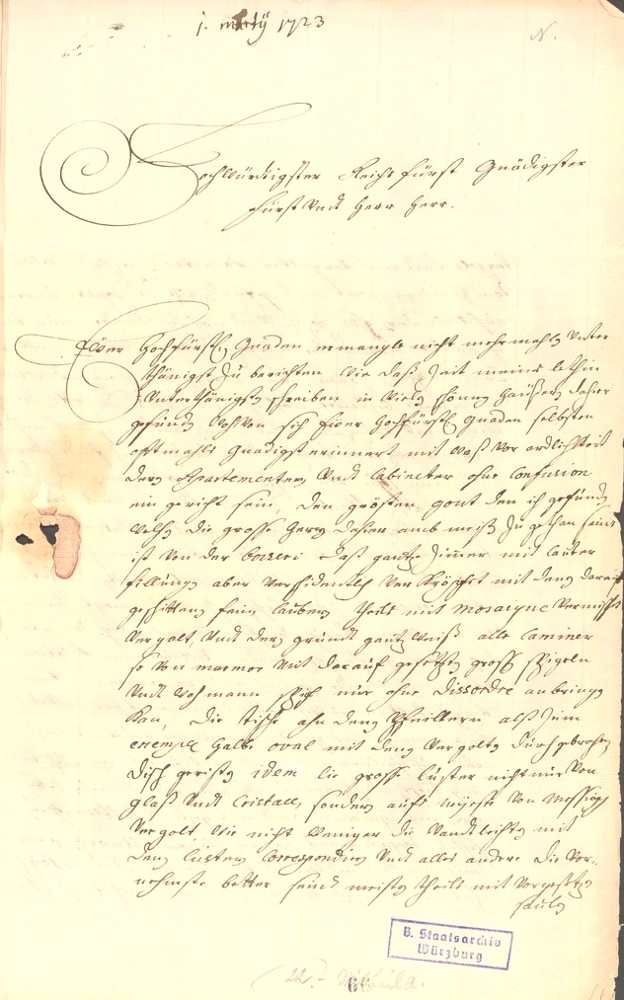 j. marty 1723
N.
Hochwürdigster Reichs fürst Gnädigster
fürst Undt Herr Herr.
Ewer Hochfürstl Gnaden ermangle nicht mehrmahls Unter
thänigst zu berichten wie daß Zeit meines letztin
Unterthänigsten schreiben in Viele schönen Haüßer dahier
gefunden Vohvon sich Ewer Hochfürstl Gnaden selbsten
offtmahls Gnädigst erinnert mit waß Vor ordlichkeit
deren Apartementer Undt Cabineter ohne Confusion
ein gericht sein, den grösten gout den ich gefunden
welchen die grosse Herrn dahier amb meisten zu gethan seint
ist Von der boiserie daß gantze Zimmer mit lauter
fillungen aber Verschidentlich Verkröpfft mit denen darein
geschnittenen feine lauberen theils mit mosaique Vermischt
Vergolt, Undt deren grundt gantz weiß alle Caminer
so Von marmor mit darauf gesetzten grosse spigelen
Undt wohmann sich nur ohne dissordre anbringen
kan, die tische ahn denen Pfeilleren alß Zum
exempel halbe oval mit denen Vergolten durchgebrochenen
disch gerister idem die grosse lüster nicht nur Von
glaß Undt Cristall, sonderen aufs neyeste Von Messing
Vergolt, wie nicht weniger die Wandtleichter mit
denen lüster Correspondiren Undt alles andere die Vor-
nehmste better seindt meisten theils mit Vorgesetzten
saulen
B. Staatsarchiv
Würzburg
22.
66